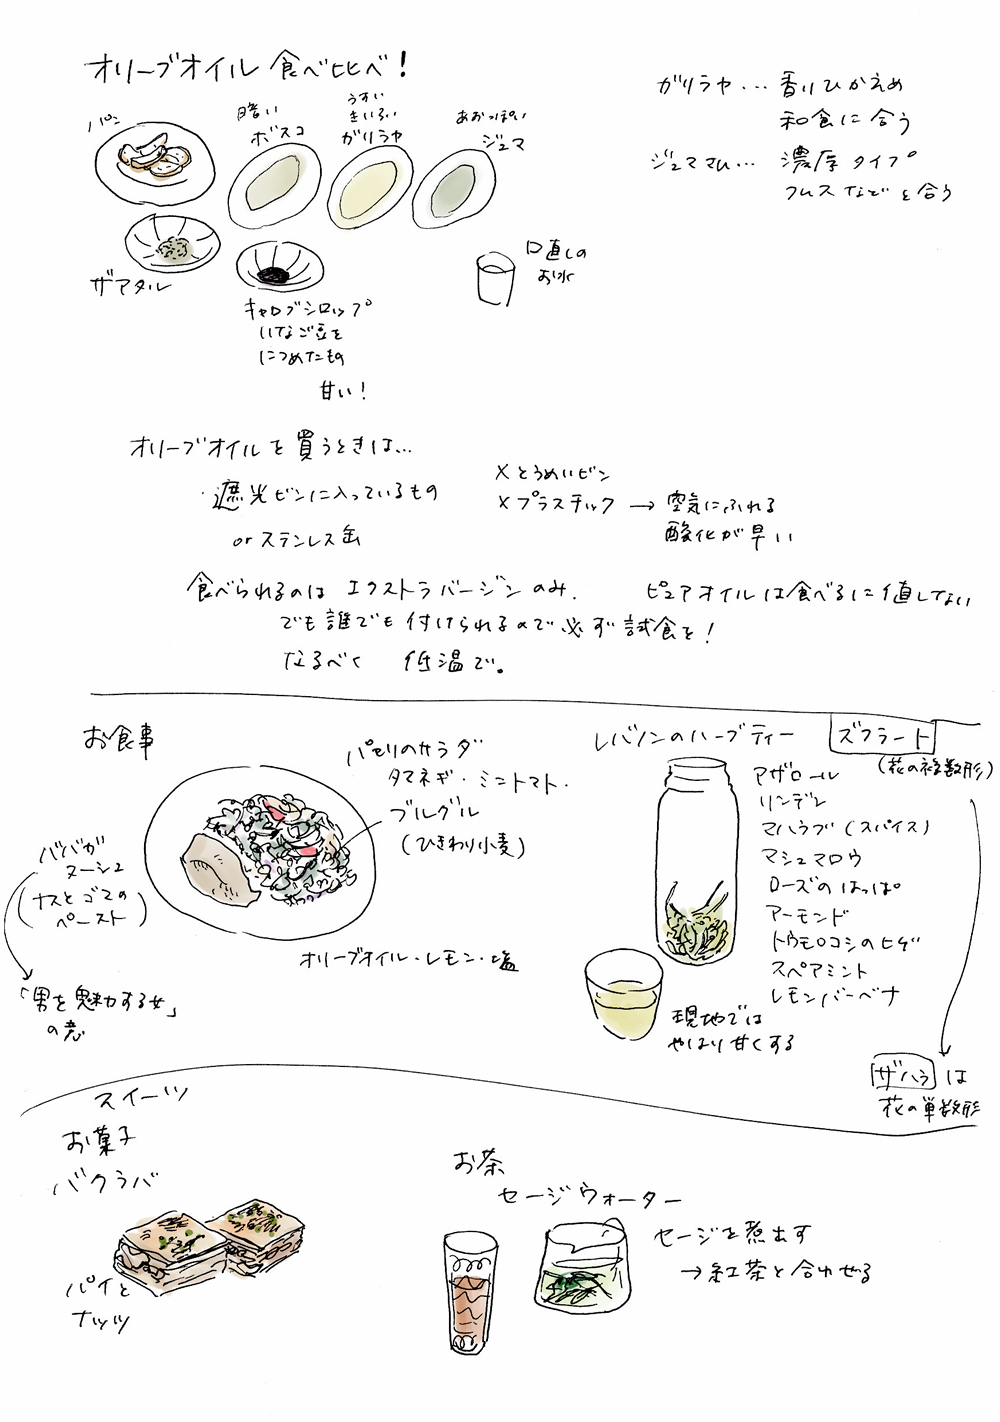 オリーブオイル 食べ比べ!
パン
暗い
ボスコ
うすい
きいろい
ガリラヤ
あおっぽい
ジュマ
ガリラヤ... 香りひかえめ
和食に合う
濃厚タイプ
フムスなどと合う
ザアタル
キャロブシロップ
いなご豆を
につめたもの
甘い!
口直しの
お水
オリーブオイルを買うときは...
・遮光ビンに入っているもの
or ステンレス缶
×とうめいビン
×プラスチック → 空気にふれる
酸化が早い
食べられるのは エクストラバージンのみ.
ピュアオイルは食べるに値してない
でも誰でも付けられるので必ず試食を!
なるべく 低温で。
お食事
パセリのサラダ
タマネギ・ミニトマト・
ブルグル
(ひきわり小麦)
ババガ
ヌーシュ
(ナスとゴマの
ペースト)
「男を魅力する女」
の意
オリーブオイル・レモン・塩
レバノンのハーブティー
ズフラート
(花の複数形)
アザロール
リンデン
マハラブ(スパイス)
マシュマロウ
ローズのはっぱ
アーモンド
トウモロコシのヒゲ
スペアミント
レモンバーベナ
現地では
やはり甘くする
ザハラ は
花の単数形
スイーツ
お菓子
バクラバ
パイと
ナッツ
お茶
セージウォーター
セージを煮出す
→紅茶と合わせる